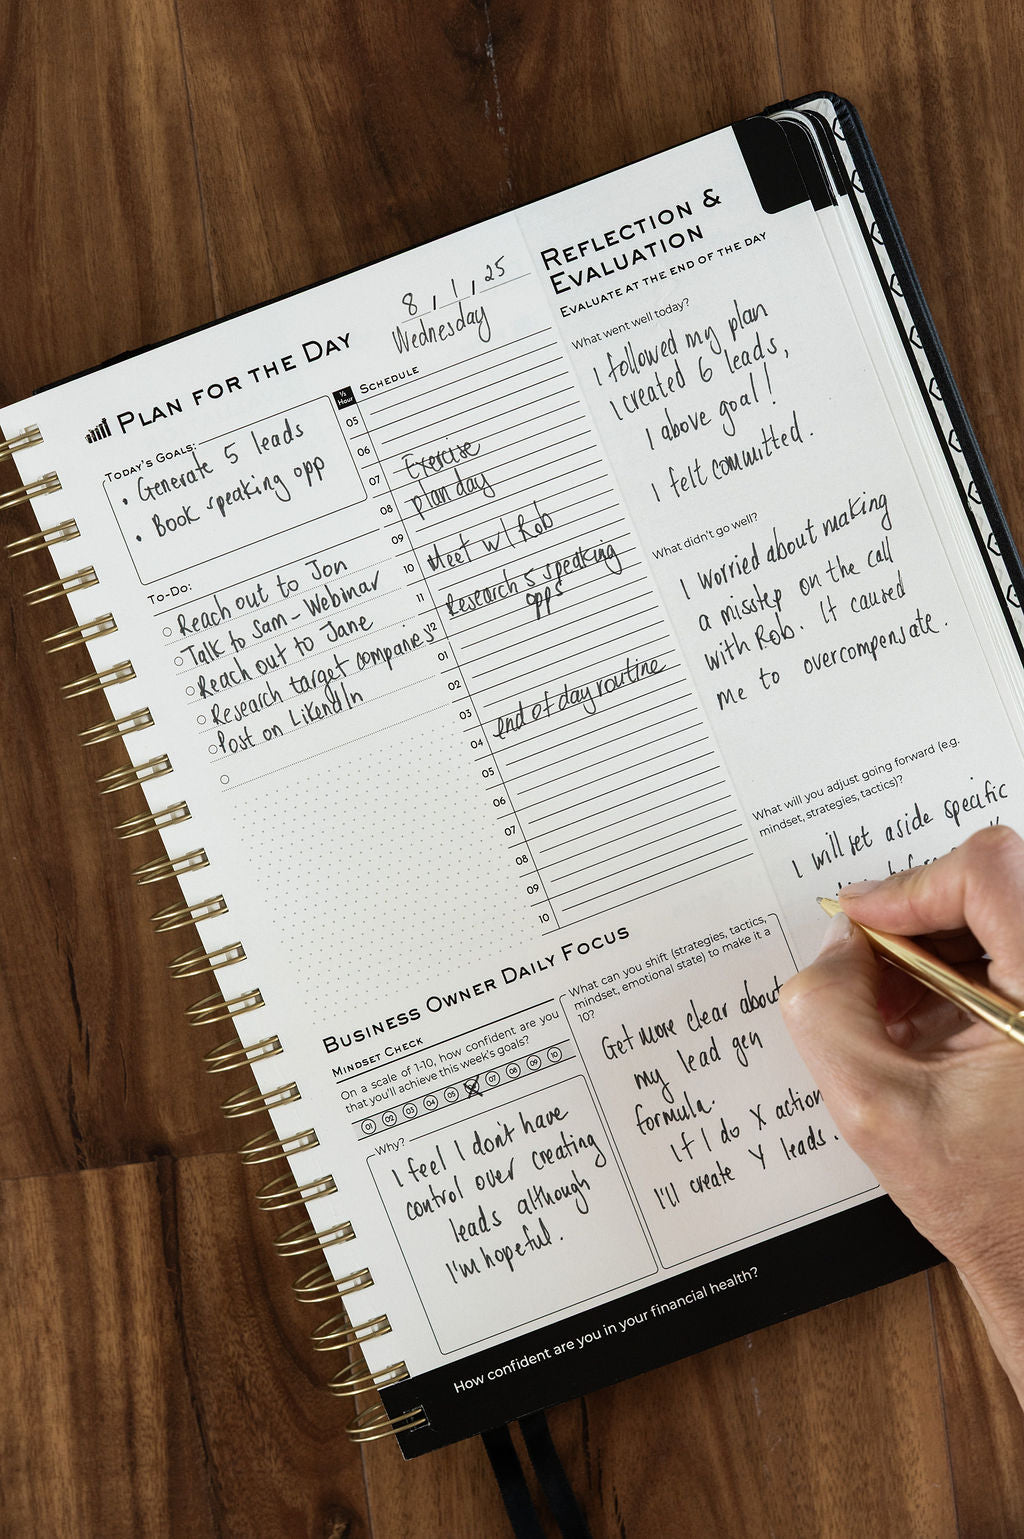 PLAN FOR THE DAY
8, 1, 25
Wednesday
TODAY'S GOALS:
• Generate 5 leads
• Book speaking opp
TO-DO:
Reach out to Jon
Talk to Sam - Webinar
Reach out to Jane
Research target companies
Post on LikendIn
½ Hour
SCHEDULE
05
06
07
08
09
10
11
12
01
02
03
04
05
06
07
08
09
10
Exercise
plan day
Meet w/ Rob
Research 5 speaking
opps
end of day routine
REFLECTION &
EVALUATION
EVALUATE AT THE END OF THE DAY
What went well today?
I followed my plan
I created 6 leads,
1 above goal!
I felt committed.
What didn't go well?
I worried about making
a misstep on the call
with Rob. It caused
me to overcompensate.
What will you adjust going forward (e.g.
mindset, strategies, tactics)?
I will set aside specific
before
BUSINESS OWNER DAILY FOCUS
MINDSET CHECK
On a scale of 1-10, how confident are you
that you'll achieve this week's goals?
01 02 03 04 05 07 08 09 10
Why?
I feel I don't have
control over creating
leads although
I'm hopeful.
What can you shift (strategies, tactics,
mindset, emotional state) to make it a
10?
Get more clear about
my lead gen
formula.
If I do X action
I'll create Y leads.
How confident are you in your financial health?